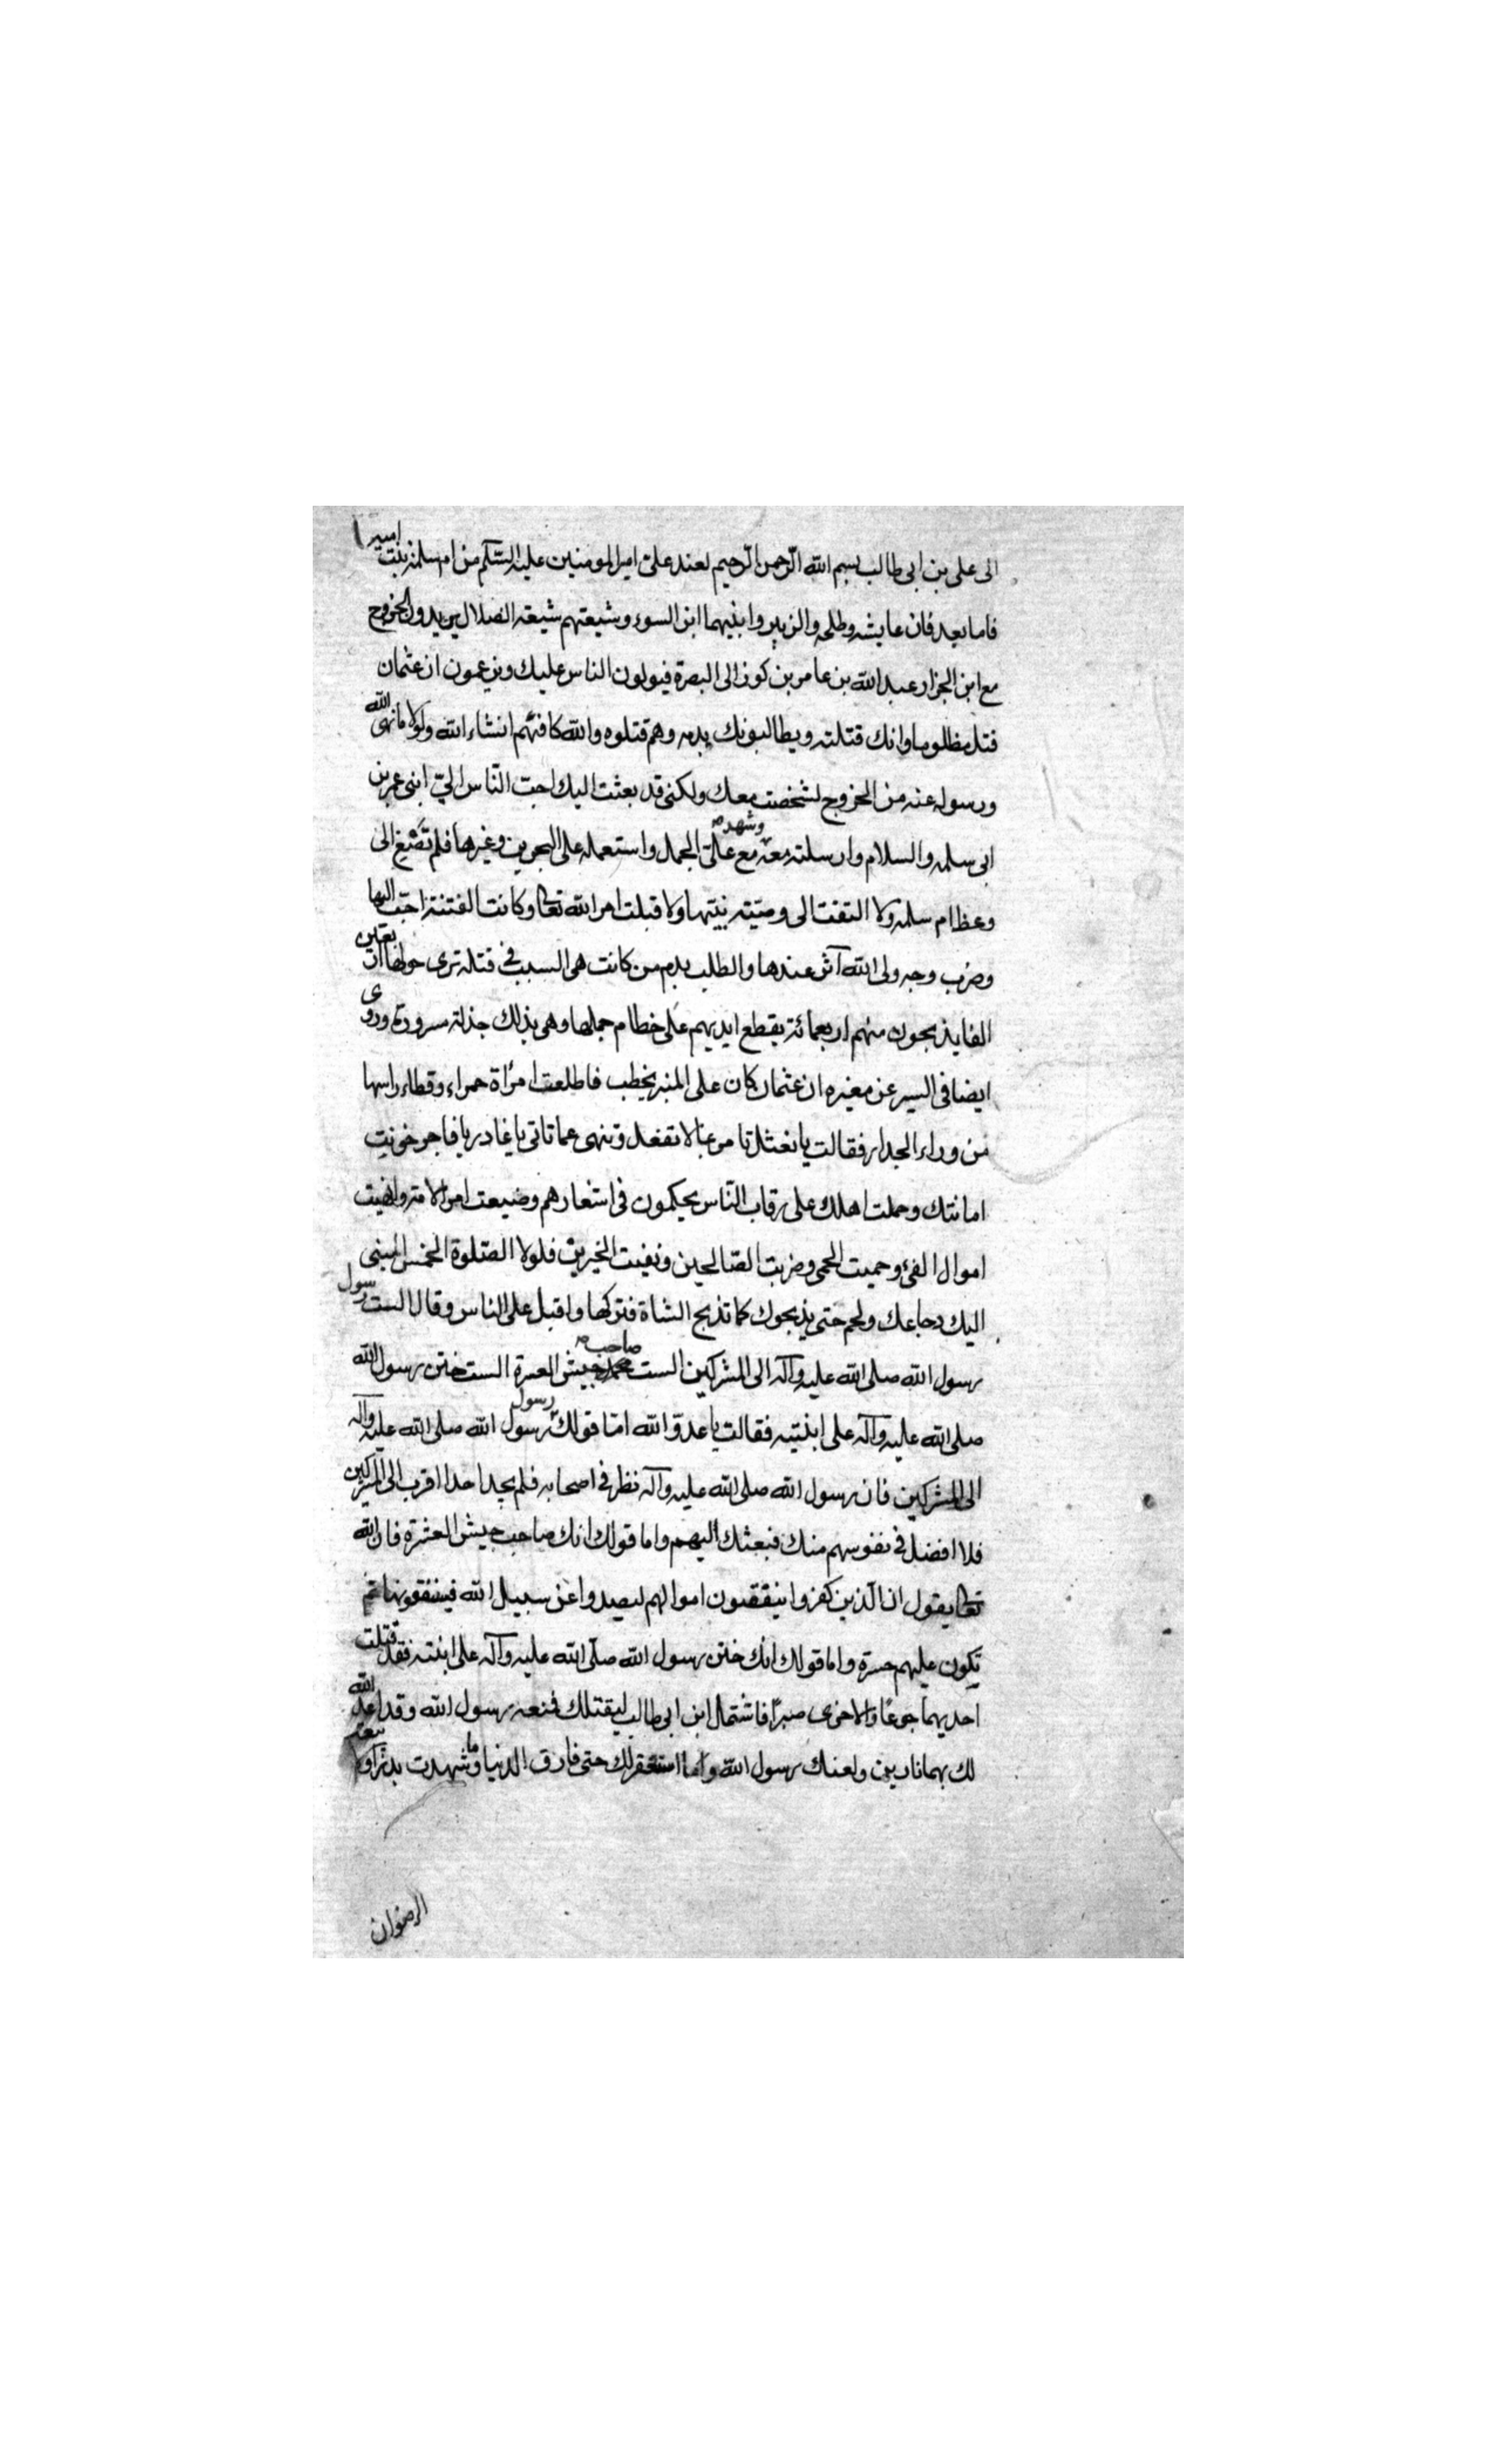 الى على بن ابى طالب بسم الله الرّحمن الرّحيم لعبد على امير المومنين عليه السّلام من ام سلمة بنت امير
فاما بعد فان عايشه وطلحه والزبير وابنيهما ابن السوء وشيعتهم شيعة الضلال يريدون الخروج
مع ابن الجزار عبد الله بن عامر بن كوز الى البصرة فيولون الناس عليك ويزعمون ان عثمان
قتل مظلوما وانك قتلته ويطالبونك بدمه وهم قتلوه والله كافيهم انشاء الله ولولا ما نهى الله
ورسوله عنه من الخروج لشخصت معك ولكنى قد بعثت اليك احب النّاس الىّ ابنى عمر بن
ابى سلمه والسلام وارسلته معه وشهد مع علىّ الجمل واستعمله على البحرين وغيرها فلم تضغ الى
وعظ ام سلمة ولا التفت الى وصيّته نبيّها ولا قبلت امر الله تعالى وكانت الفتنة احبّ اليها
وضرب وجه ولى الله آثر عندها والطلب بدم من كانت هى السبب فى قتله ترى حولها ان بعين
الفا يذبحون منهم اربعمائة يقطع ايديهم على خطام جملها وهى بذلك جذلة مسرورة وروى
ايضا فى السير عن مغيره ان عثمان كان على المنبر يخطب فاطلعت امرأة حمراء وقطاء راسها
من وراء الجدار فقالت يا نعثل تا مرنا بما لا تفعل وتنهى عما تاتى يا غادر يا فاجر خونت
امانتك وحملت اهلك على رقاب النّاس يحكمون فى اشعارهم وضيعت امر الامة وافنيت
اموال الفئ وحميت الحمى وضربت الصّالحين ونفيت الخيرين فلولا الصّلوة الخمس لمشى
اليك رجا عك ولحم حتى يذبحوك كما تذبح الشاة فتركها واقبل على الناس وقال الست رسول
رسول الله صلى الله عليه وآله الى المشركين الست صاحب جيش العسرة الست ختن رسول الله
صلى الله عليه وآله على ابنتيه فقالت يا عدوّ الله امّا قولك رسول رسول الله صلى الله عليه وآله
الى المشركين فان رسول الله صلى الله عليه وآله نظر فى اصحابه فلم يجد احدا اقرب الى المشركين
فلا افضل فى نفوسهم منك فبعثك اليهم واما قولك انك صاحب جيش العشرة فان الله
تعالى يقول ان الّذين كفروا ينفقون اموالهم ليصدوا عن سبيل الله فينفقونها ثم
تكون عليهم حسرة واما قولك انك ختن رسول الله صلّى الله عليه وآله على ابنته فقد قتلت
احديهما جوعًا والاخرى صبرًا فاشتمل ابن ابى طالب ليقتلك فمنعه رسول الله وقد اعد الله
لك بهما نارين ولعنك رسول الله وما استغفر لك حتى فارق الدنيا وما شهدت بدرًا ولا بيعة
الرضوان